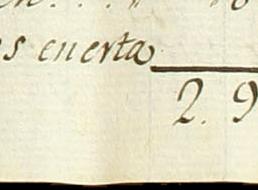 s en esta
2. 9